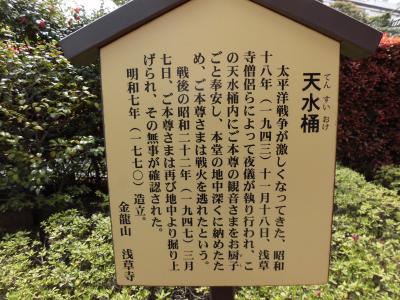 天水桶
てんすいおけ
太平洋戦争が激しくなってきた、昭和
十八年（一九四三）十一月十八日、浅草
寺僧侶らによって夜儀が執り行われ、こ
の天水桶内にご本尊の観音さまをお厨子
ごと奉安し、本堂の地中深くに納めたた
め、ご本尊さまは戦火を逃れたという。
戦後の昭和二十二年（一九四七）三月
七日、ご本尊さまは再び地中より掘り上
げられ、その無事が確認された。
明和七年（一七七〇）造立。
金龍山　浅草寺